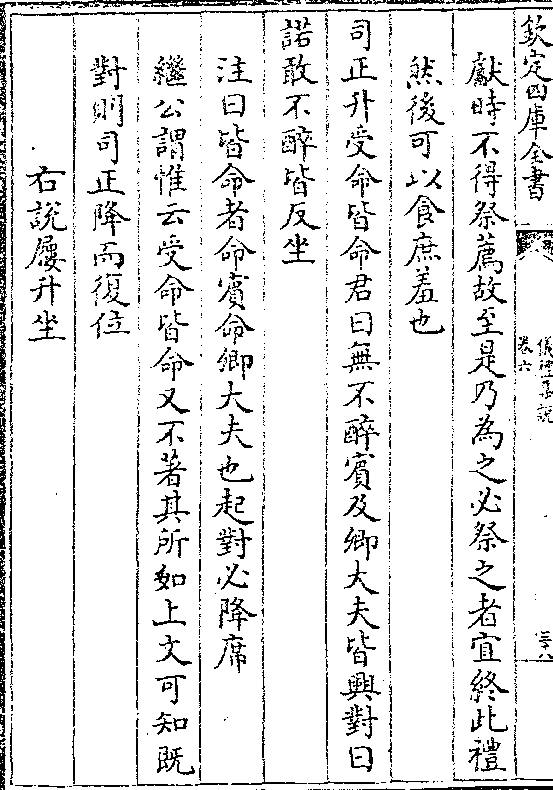 欽定四庫全書
儀禮集說
卷六
三十八
獻時不得祭薦故至是乃為之必祭之者宜終此禮
然後可以食庶羞也
司正升受命皆命君曰無不醉賓及卿大夫皆興對曰
諾敢不醉皆反坐
注曰皆命者命賓命卿大夫也起對必降席
繼公謂惟云受命皆命又不著其所如上文可知既
對則司正降而復位
右說屨升坐